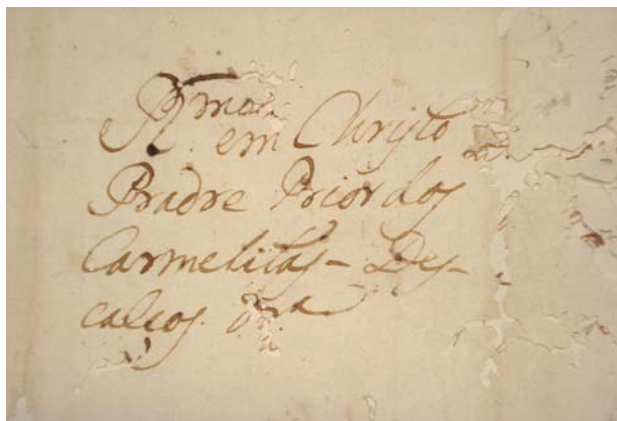 R.mo em Christo
Padre Prior dos
Carmelitas - Des-
calcos